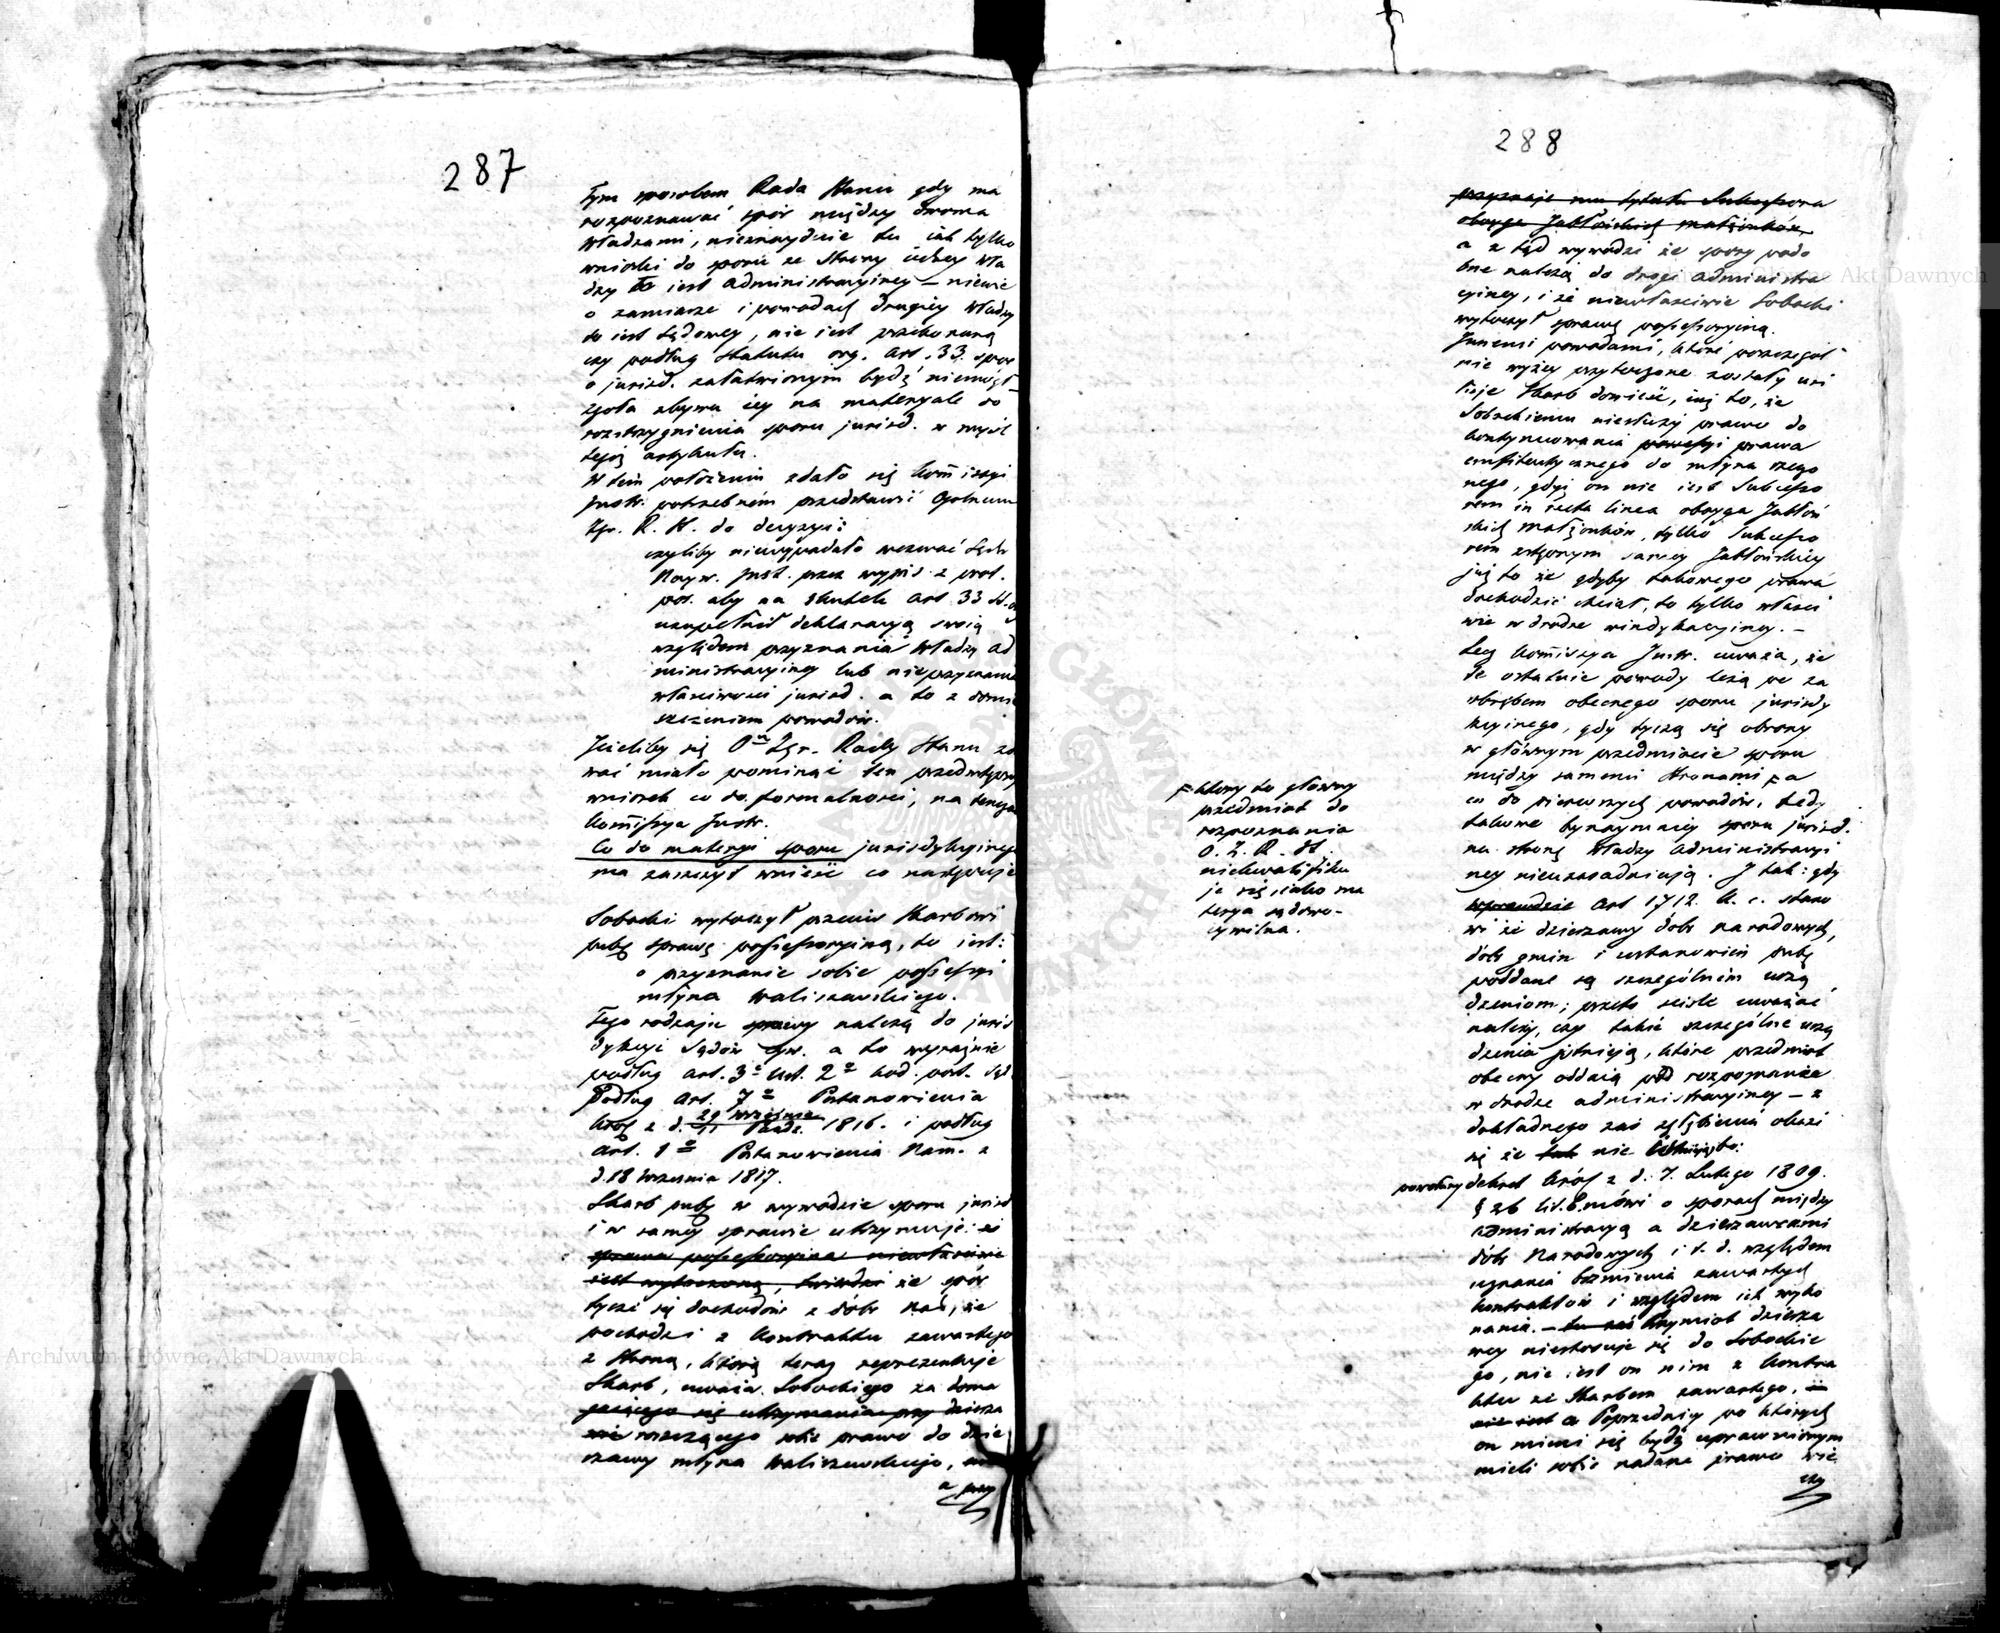 287
Tym sposobem Rada Stanu gdy ma
rozpoznawać spór między dwoma
Władzami, nieznayduie tu iak tylko
wnioski do sporu ze strony iedney Wła
dzy to iest administracyiney — niewie
o zamiarze i powodach drugiey Władzy
to iest Sądowey, nie iest przekonaną
czy podług Statutu org. art. 33. spor
o jurisd. załatwionym bydź niemógł
zgoła zbywa iey na materyale do
rozstrzygnienia sporu jurisd. w myśl
tegoż artykułu.
W tem położeniu zdało się Kommissyi
Justr. potrzebném przedstawić Ogólnemu
Zgr. R. S. do decyzyi:
czyliby niewypadało wezwać Sądu
Nayw. Inst. przez wypis z prot.
pos. aby na skutek art 33 St. o
uzupełnił deklaracyą swoią
względem przyznania Władzy ad
ministracyiney lub nieprzyznania
właściwości jurisd. a to z domie
szczeniem powodów.
Jeżeliby się Oⁿ Zgr. Rady Stanu zda
wać miało pominąć ten przedwstępny
wniosek co do formalności, na tenczas
Kommissya Instr.
Co do materyi sporu jurisdykcyinego
ma zaszczyt wnieść co następuje
Sobocki wytoczył przeciw Skarbowi
publ sprawę possessoryiną, to iest:
o przyznanie sobie possessyi
młyna Waliszewskiego.
Tego rodzaju sprawy należą do juris
dykcyi Sądów cyw. a to wyraźnie
podług art. 3º Ust. 2º kod. post. Sąd.
Podług art. 7º Postanowienia
Król z d. 29 Września / 11 Paźdz. 1816. i podług
Art. 1º Postanowienia Nam. z
d. 18 Września 1817.
Skarb publ w wywodzie sporu jurisd
i w samey sprawie utrzymuje: że
sprawa possessoryina niewłaściwie
iest wytoczoną, twierdzi że spór
tycze się dochodów z dóbr Nar., że
pochodzi z Kontraktu zawartego
z Stroną, którą teraz reprezentuje
Skarb, uważa Sobockiego za doma
gaiącego się utrzymania przy dzierża
wie roszczącego sobie prawo do dzie
rzawy młyna Waliszewskiego,
a przy
288
przyznaje mu tytułu Sukcessora
oboyga Jabłońskich małżonków,
a z tąd wywodzi że spory podo
bne należą do drogi administra
cyiney, i że niewłaściwie Sobocki
wytoczył sprawę possessoryiną.
Innemi powodami, które poszczegól
nie wyżey przytoczone zostały usi
łuje Skarb dowieść, iuż to, że
Sobockiemu niesłuży prawo do
kontynuowania possessyi prawa
emfiteutycznego do młyna rzeczo
nego, gdyż on nie iest Sukcesso
rem in recta linea oboyga Jabłoń
skich małżonków, tylko Sukcesso
rem wstępnym samey Jabłońskiey
już to że gdyby takowego prawa
dochodzić chciał, to tylko właści
wie w drodze windykacyiney. —
Lecz Kommissya Instr. uważa, że
te ostatnie powody leżą po za
obrębem obecnego sporu jurisdy
kcyinego, gdy tyczą się obrony
w głównym przedmiocie sporu
między samemi Stronami ꟻ a
co do pierwszych powodów, tedy
takowe bynaymniey sporu jurisd.
na stronę Władzy administracyi
ney nieuzasadniają. I tak: gdy
wprawdzie Art 1712. K. c. stano
wi że dzierżawy dóbr narodowych,
dóbr gmin i ustanowień publ
poddane są szczególnem urzą
dzeniom; przeto ściśle uważać
należy, czy takie szczególne urzą
dzenia istnieją, które przedmiot
obecny oddaią pod rozpoznanie
w drodze administracyiney — z
dokładnego zaś zgłębienia okazu
się że tak nie iest, bo:
powołany dekret Król z d. 7. Lutego 1809.
§ 26 lit. E. mówi o sporach między
administracyą a dzierżawcami
dóbr Narodowych i t. d. względem
uznania brzmienia zawartych
kontraktów i względem ich wyko
nania. — tu zaś Przymiot dzierża
wcy niestosuje się do Sobockie
go, nie iest on nim z kontra
ktu ze Skarbem zawartego,
nie iest a Poprzednicy po których
on mieni się bydź uprawnionym
mieli sobie nadane prawo wie
czy
ꟻ który to główny
przedmiot do
rozpoznania
O. Z. R. St.
niekwalifiku
je się iako ma
terya sądowo-
cywilna.
Archiwum Główne Akt Dawnych